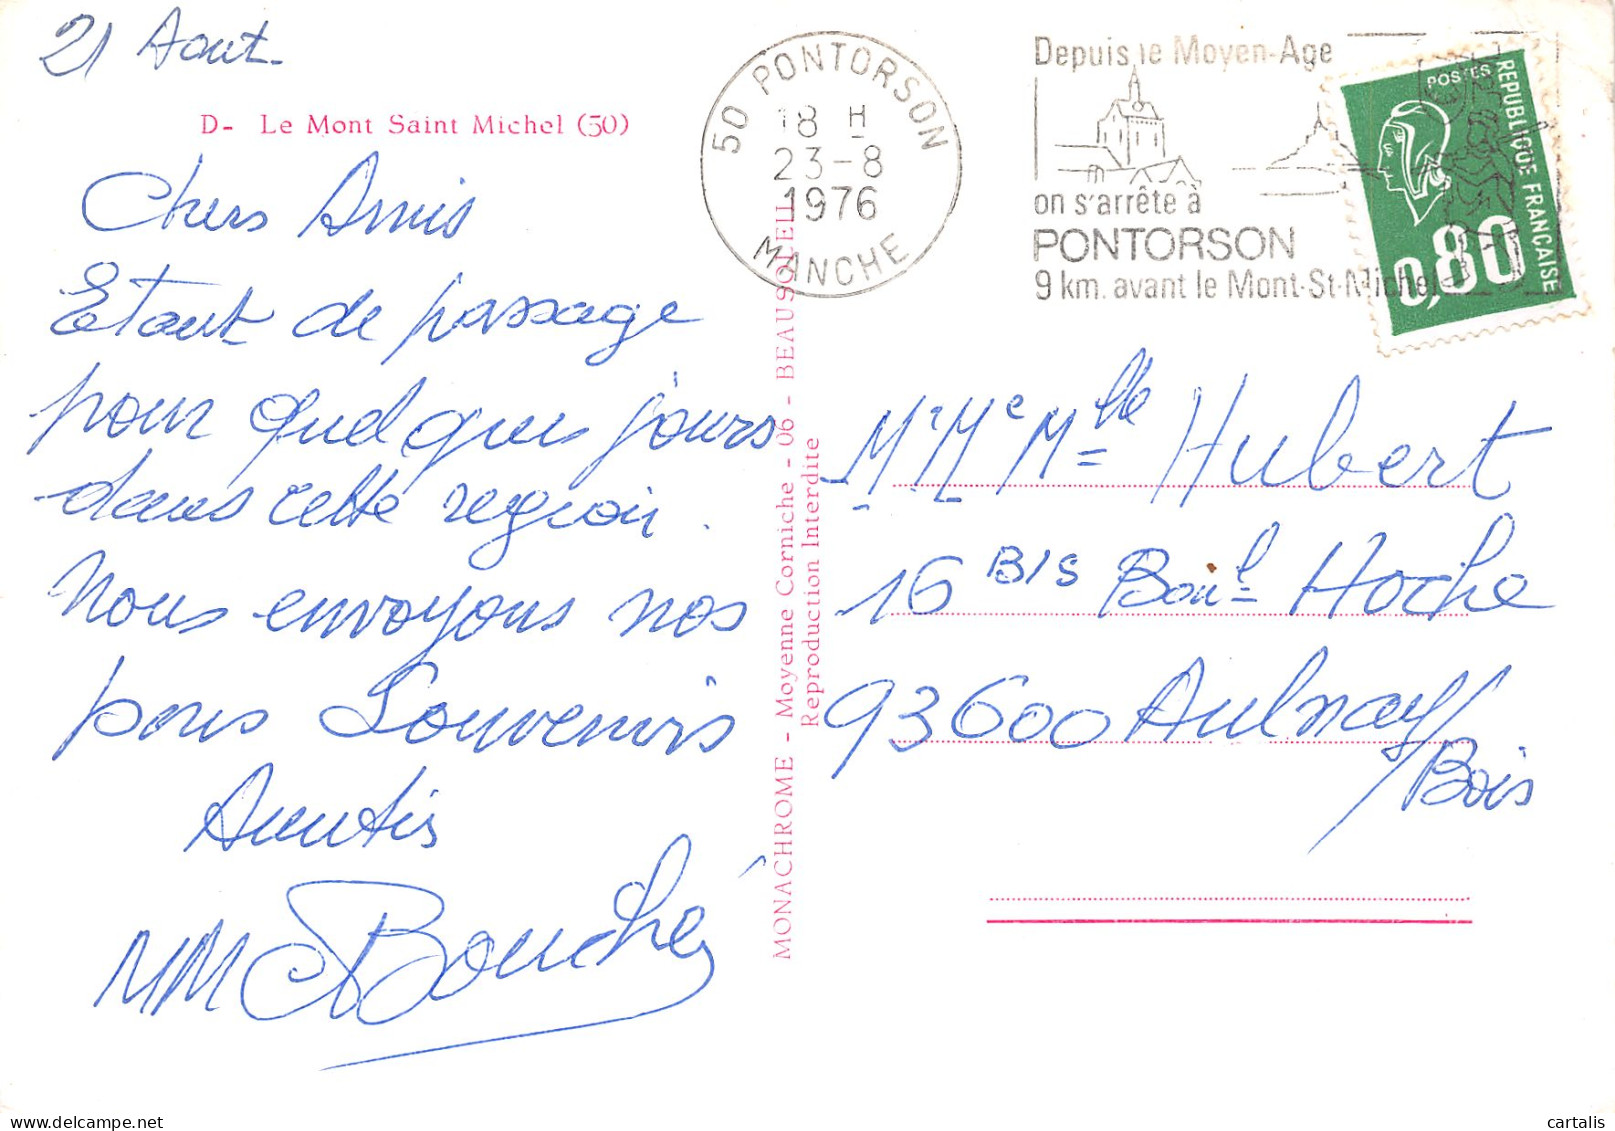 21 Aout.
D- Le Mont Saint Michel (50)
Chers Amis
Etant de passage
pour quelques jours
dans cette region.
Nous envoyons nos
bons Souvenirs
Amitis
MM Bouché
MONACHROME - Moyenne Corniche - 06 - BEAUSOLEIL
Reproduction Interdite
50 PONTORSON
18 H
23-8
1976
MANCHE
Depuis le Moyen-Age
on s'arrête à
PONTORSON
9 km. avant le Mont-St-Michel
POSTES
REPUBLIQUE FRANCAISE
0,80
Mr Me Mlle Hubert
16 BIS Boul Hoche
93600 Aulnay/
Bois
cartalis